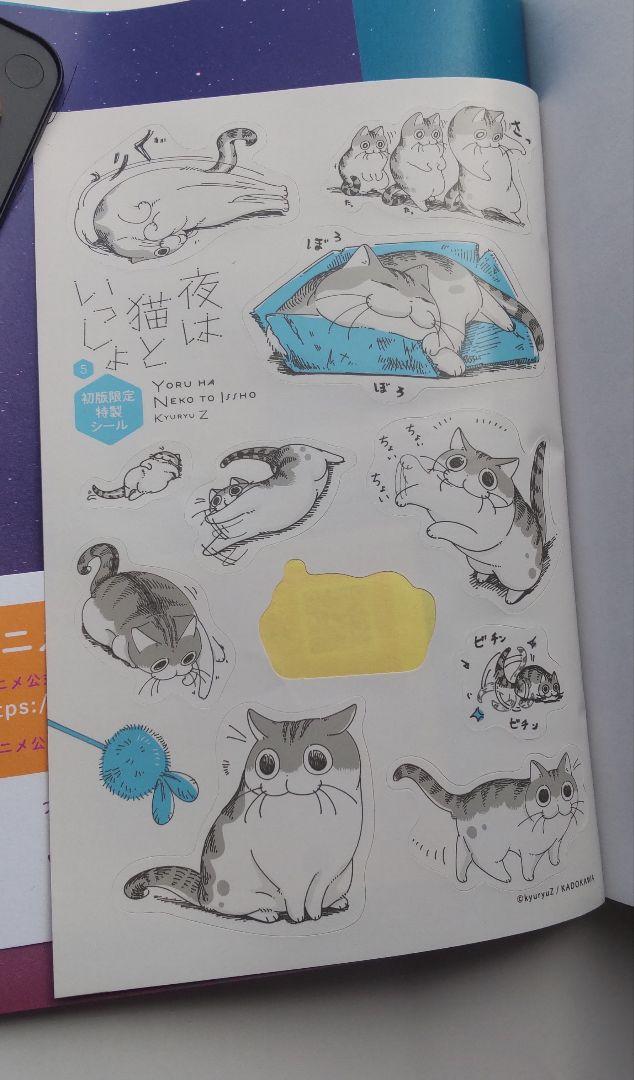 ぐ
り
さっ
た。
た。
ぼろ
ぼろ
夜は
猫と
いっしょ
5
初版限定
特製
シール
YORU HA
NEKO TO ISSHO
KYURYU Z
ちょい
ちょい
ちょい
ビチン
ビチン
ニメ公
ttps://
ニメ公
©kyuryuZ / KADOKAWA